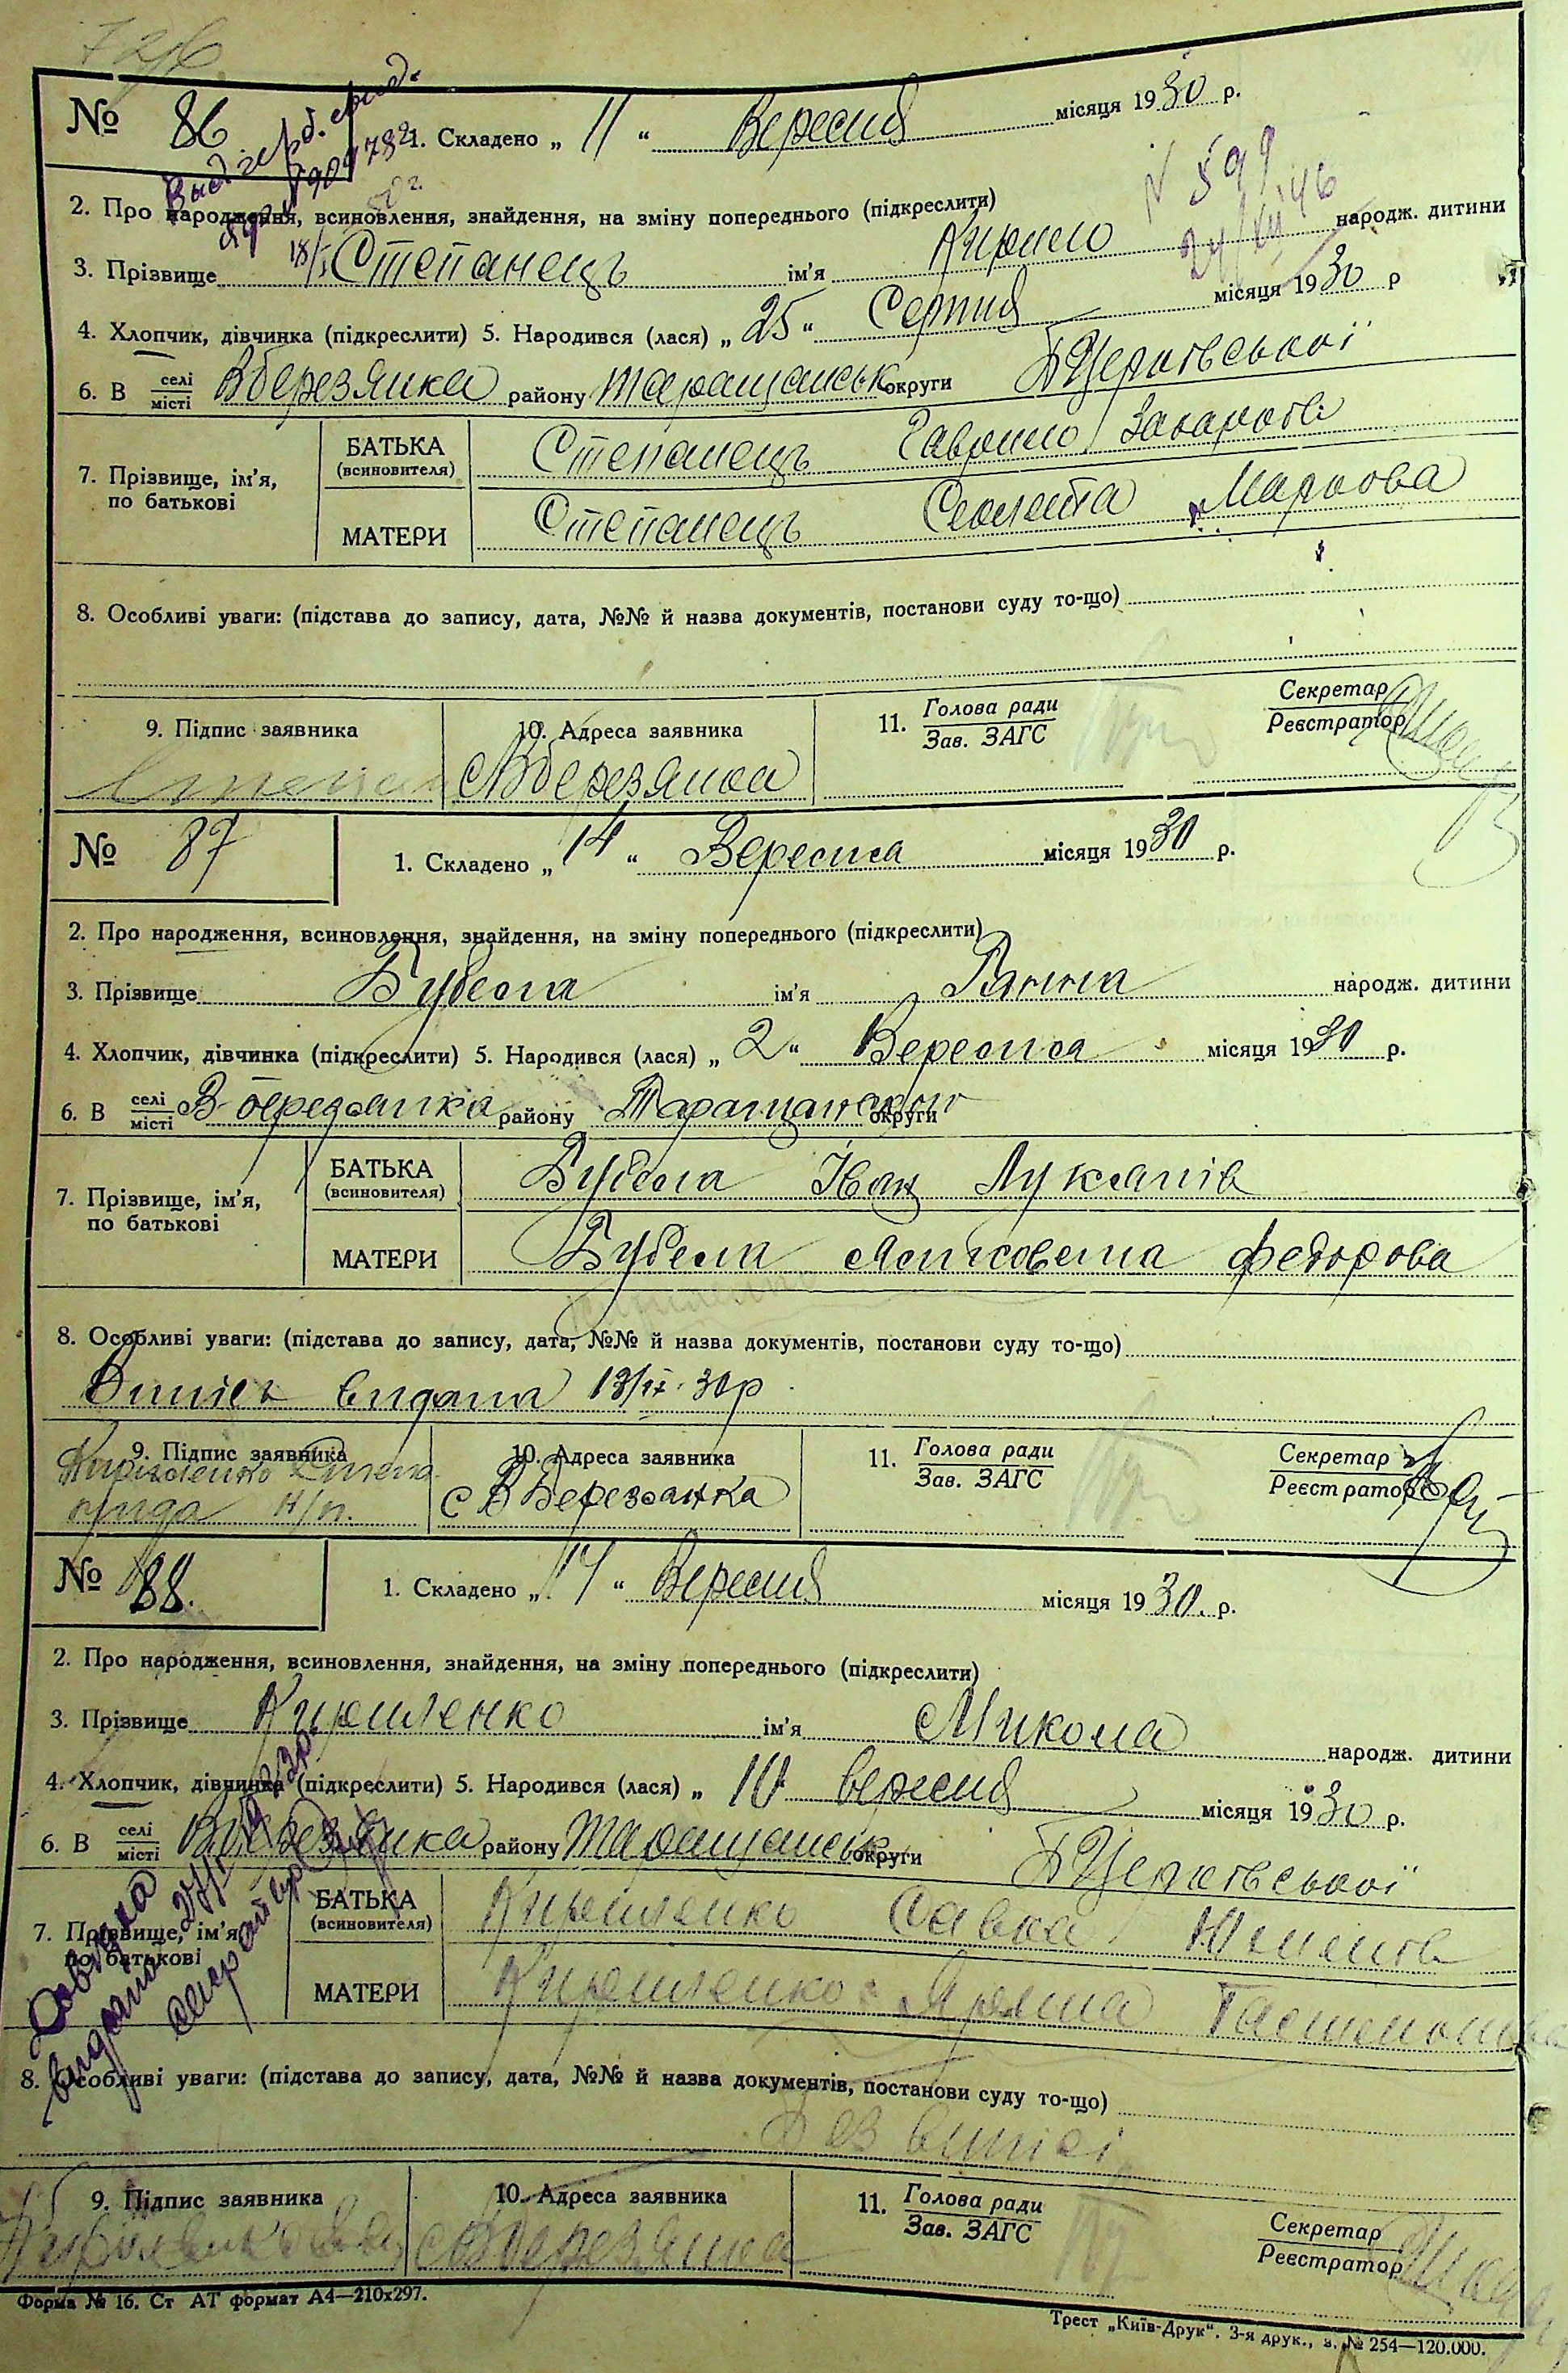 № 86 1. Складено „ 11 “ Вересня місяця 1930 р.
2. Про народження, всиновлення, знайдення, на зміну попереднього (підкреслити)
3. Прізвище Степанець ім’я Кирило народж. дитини
4. Хлопчик, дівчинка (підкреслити) 5. Народився (лася) „ 25 “ Серпня місяця 1930 р
6. В селі місті Вберезянка району Таращанськ округи БЦерківської
7. Прізвище, ім’я, по батькові
БАТЬКА (всиновителя) Степанець Гаврило Захарів
МАТЕРИ Степанець Маркова
8. Особливі уваги: (підстава до запису, дата, №№ й назва документів, постанови суду то-що)
9. Підпис заявника 10. Адреса заявника 11. Голова ради Зав. ЗАГС Секретар Реєстратор
Вберезянка
№ 87 1. Складено „ 14 “ Вересня місяця 1930 р.
2. Про народження, всиновлення, знайдення, на зміну попереднього (підкреслити)
3. Прізвище Бубела ім’я Ганна народж. дитини
4. Хлопчик, дівчинка (підкреслити) 5. Народився (лася) „ 2 “ Вересня місяця 1930 р.
6. В селі місті В-березянка району Таращанськ округи
7. Прізвище, ім’я, по батькові
БАТЬКА (всиновителя) Бубела Іван Лукянів
МАТЕРИ Бубела Федорова
8. Особливі уваги: (підстава до запису, дата, №№ й назва документів, постанови суду то-що)
Випись видана 13/ІХ. 30р
9. Підпис заявника 10. Адреса заявника 11. Голова ради Зав. ЗАГС Секретар Реєстратор
с В Березанка
№ 88. 1. Складено „ 14 “ Вересня місяця 1930. р.
2. Про народження, всиновлення, знайдення, на зміну попереднього (підкреслити)
3. Прізвище Кириленко ім’я Микола народж. дитини
4. Хлопчик, дівчинка (підкреслити) 5. Народився (лася) „ 10 вересня місяця 1930 р.
6. В селі місті Вберезянка району Таращанськ округи БЦерківської
7. Прізвище, ім’я, по батькові
БАТЬКА (всиновителя) Кириленко Савка
МАТЕРИ Кириленко
Довідка видано
8. Особливі уваги: (підстава до запису, дата, №№ й назва документів, постанови суду то-що)
Без виписі
9. Підпис заявника 10. Адреса заявника 11. Голова ради Зав. ЗАГС Секретар Реєстратор
Вберезянка
Форма № 16. Ст АТ формат А4—210х297.
Трест „Київ-Друк“. 3-я друк., з. № 254—120.000.